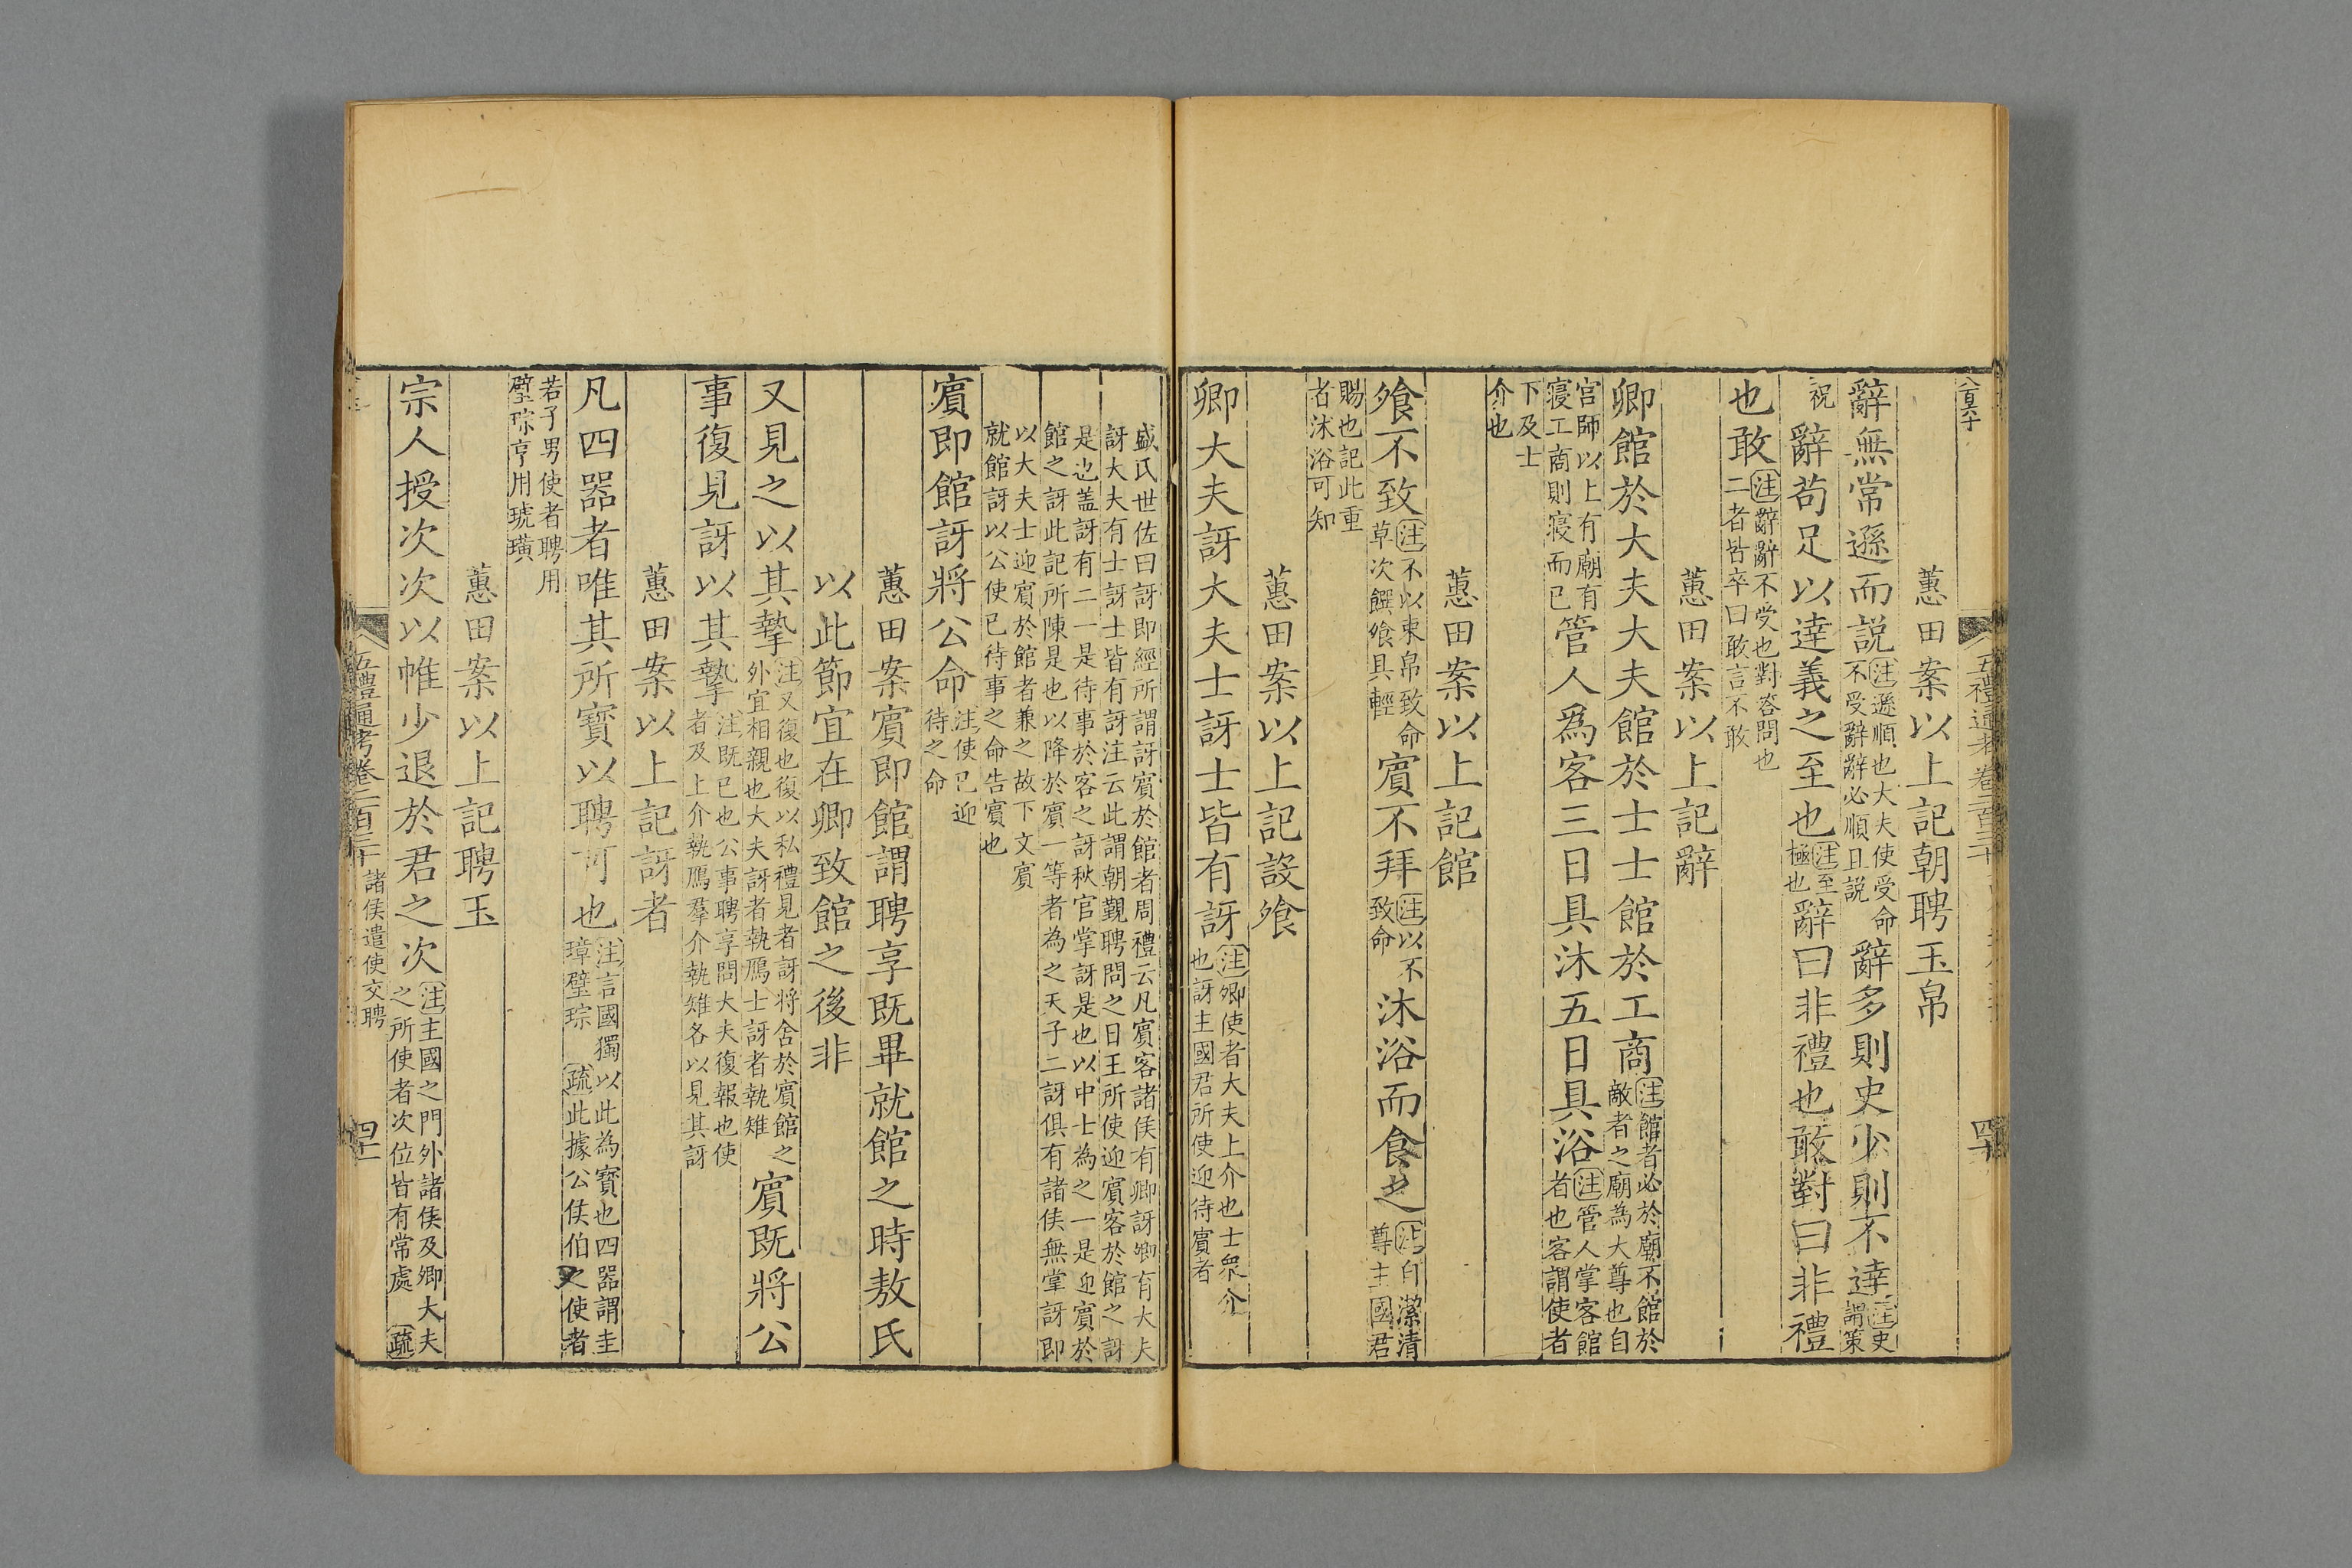 蕙田案以上記朝聘玉帛
辭無常遜而説注遜順也大夫使受命不受辭辭必順且説辭多則史少則不達注史謂策
祝辭苟足以達義之至也注至極也辭曰非禮也敢對曰非禮
也敢注辭辭不受也對荅問也二者皆卒曰敢言不敢
蕙田案以上記辭
卿館於大夫大夫館於士士館於工商注館者必於廟不館於敵者之廟為大尊也自
官師以上有廟有寢工商則寢而已管人爲客三日具沐五日具浴注管人掌客館者也客謂使者
下及士介也
蕙田案以上記館
飧不致注不以束帛致命草次饌飧具輕賓不拜注以不致命沐浴而食之注自潔清尊主國君
賜也記此重者沐浴可知
蕙田案以上記設飧
卿大夫訝大夫士訝士皆有訝注卿使者大夫上介也士衆介也訝主國君所使迎待賓者
盛氏世佐曰訝即經所謂訝賓於館者周禮云凡賓客諸侯有卿訝卿有大夫
訝大夫有士訝士皆有訝注云此謂朝覲聘問之日王所使迎賓客於館之訝
是也盖訝有二一是待事於客之訝秋官掌訝是也以中士為之一是迎賓於
館之訝此記所陳是也以降於賓一等者為之天子二訝俱有諸侯無掌訝即
以大夫士迎賓於館者兼之故下文賓
就館訝以公使已待事之命告賓也
賓即館訝將公命注使已迎待之命
蕙田案賓即館謂聘享既畢就館之時敖氏
以此節宜在卿致館之後非
又見之以其摯注又復也復以私禮見者訝將舍於賓館之外宜相親也大夫訝者執鴈士訝者執雉賓既將公
事復見訝以其摯注既已也公事聘享問大夫復報也使者及上介執鴈羣介執雉各以見其訝
蕙田案以上記訝者
凡四器者唯其所寶以聘可也注言國獨以此為寶也四器謂圭璋璧琮疏此據公侯伯之使者
若子男使者聘用璧琮享用琥璜
蕙田案以上記聘玉
宗人授次次以帷少退於君之次注主國之門外諸侯及卿大夫之所使者次位皆有常處疏
五禮通考卷二百三十 諸侯遣使交聘 四十一